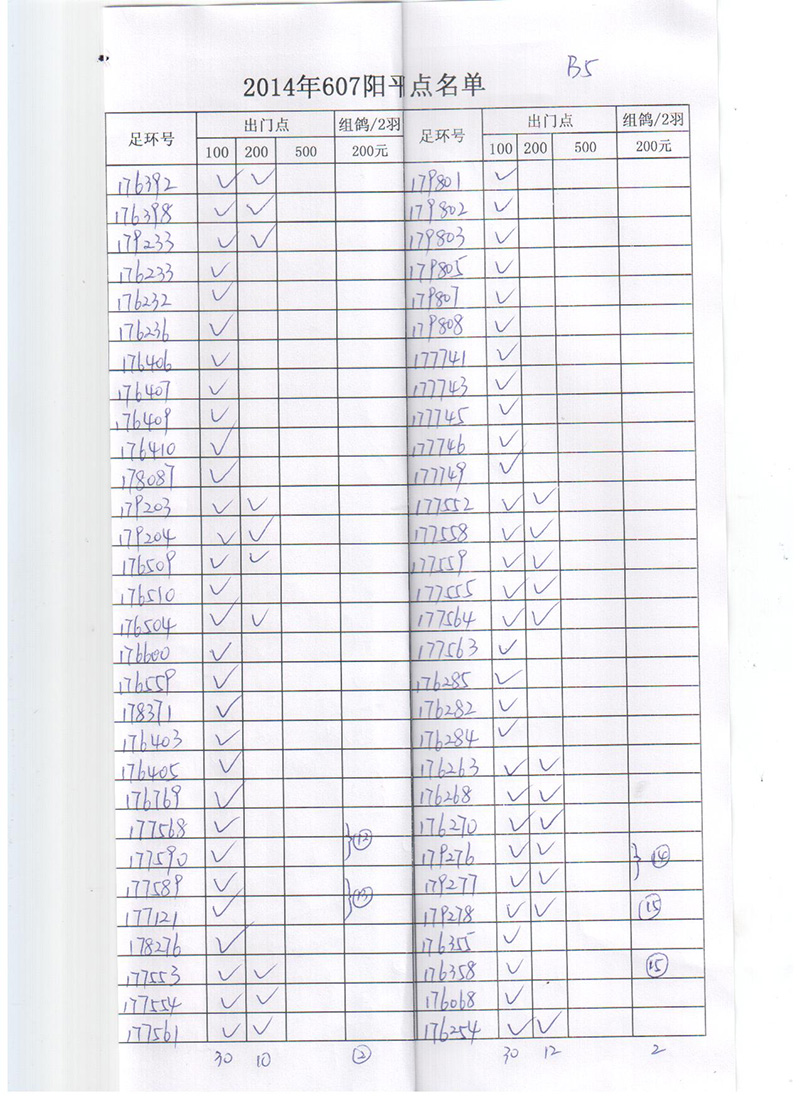 B5
2014年607阳平点名单
足环号 出门点 组鸽/2羽 足环号 出门点 组鸽/2羽
100 200 500 200元 100 200 500 200元
176392 ✓ ✓ 179801 ✓
176398 ✓ ✓ 179802 ✓
179233 ✓ ✓ 179803 ✓
176233 ✓ 179805 ✓
176232 ✓ 179807 ✓
176236 ✓ 179808 ✓
176406 ✓ 177741 ✓
176407 ✓ 177743 ✓
176409 ✓ 177745 ✓
176410 ✓ 177746 ✓
178087 ✓ 177749 ✓
179203 ✓ ✓ 177552 ✓ ✓
179204 ✓ ✓ 177558 ✓ ✓
176509 ✓ ✓ 177559 ✓ ✓
176510 ✓ 177555 ✓ ✓
176504 ✓ ✓ 177564 ✓ ✓
176600 ✓ 177563 ✓
176559 ✓ 176285 ✓
178371 ✓ 176282 ✓
176403 ✓ 176284 ✓
176405 ✓ 176263 ✓ ✓
176769 ✓ 176268 ✓ ✓
177568 ✓ } ⑫ 176270 ✓ ✓
177590 ✓ 179276 ✓ ✓ } ⑭
177589 ✓ } ⑬ 179277 ✓ ✓
177121 ✓ 179278 ✓ ✓ ⑮
178276 ✓ 176355 ✓
177553 ✓ ✓ 176358 ✓ ⑮
177554 ✓ ✓ 176068 ✓
177561 ✓ ✓ 176254 ✓ ✓
30 10 ② 30 12 2